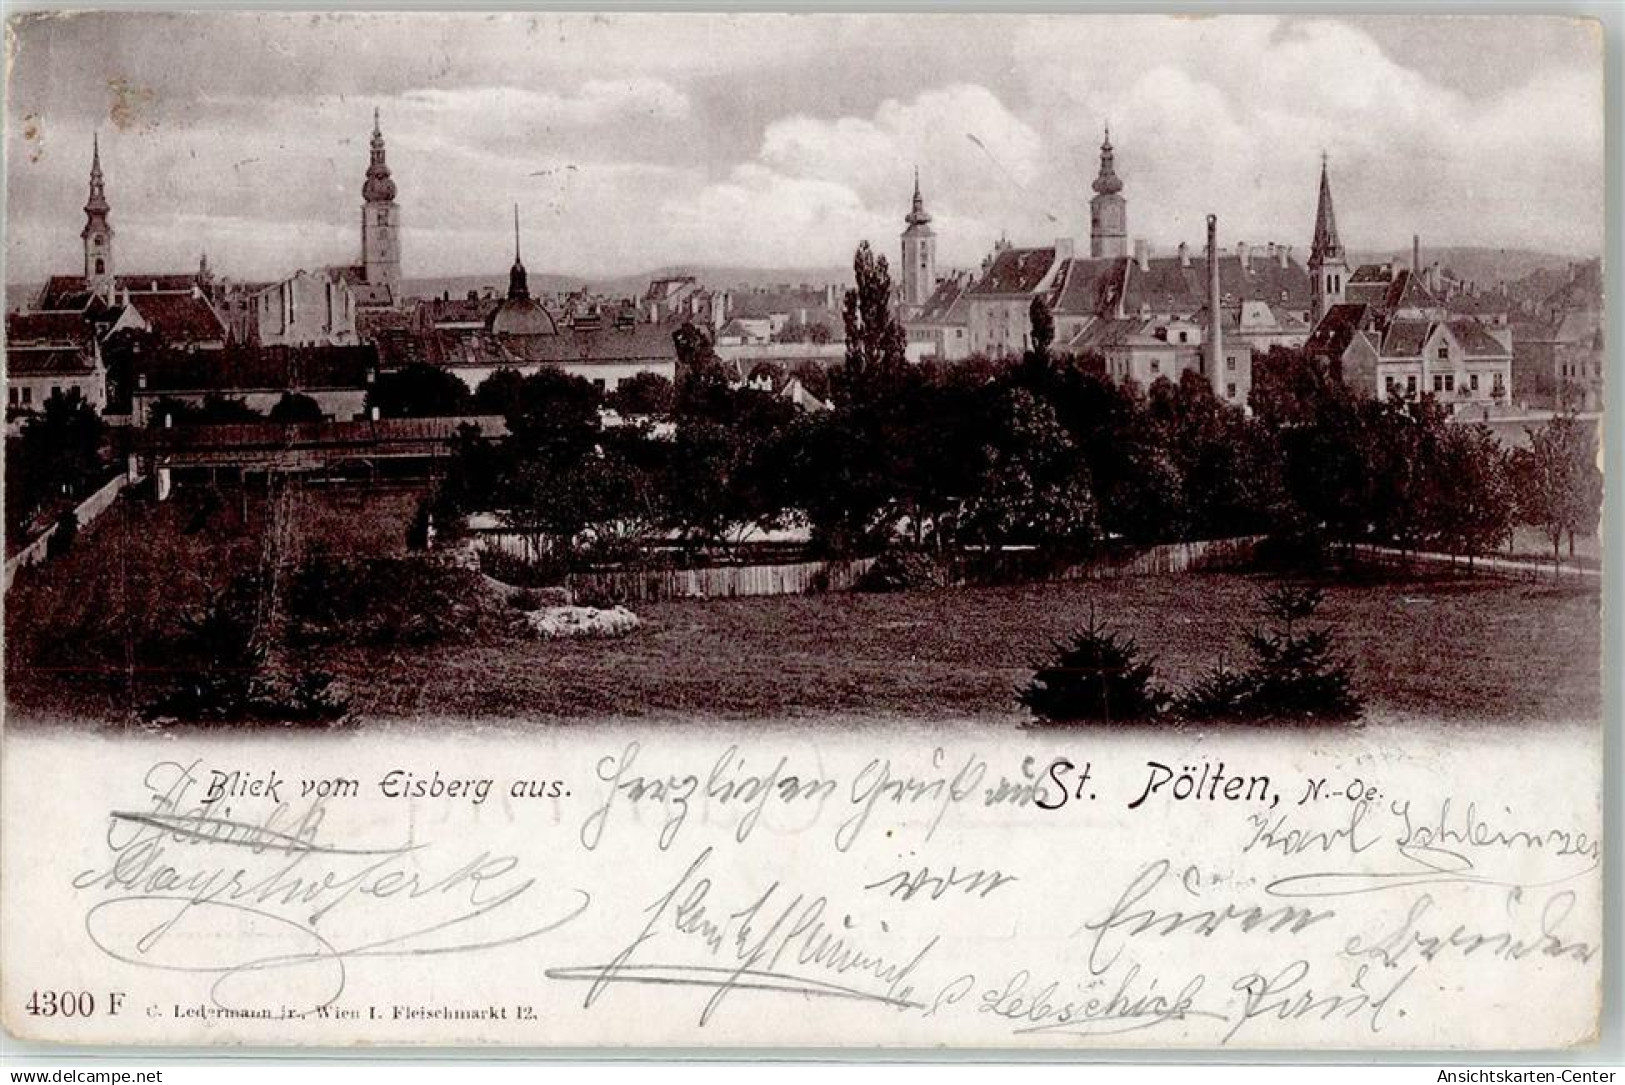 Blick vom Eisberg aus.
Herzlichen Gruß aus
St. Pölten, N.-Oe.
Karl
Mayrhofer
von
Euren
Bruder
Lebschick Paul.
4300 F C. Ledermann jr., Wien I. Fleischmarkt 12.
delcampe.net
Ansichtskarten-Center